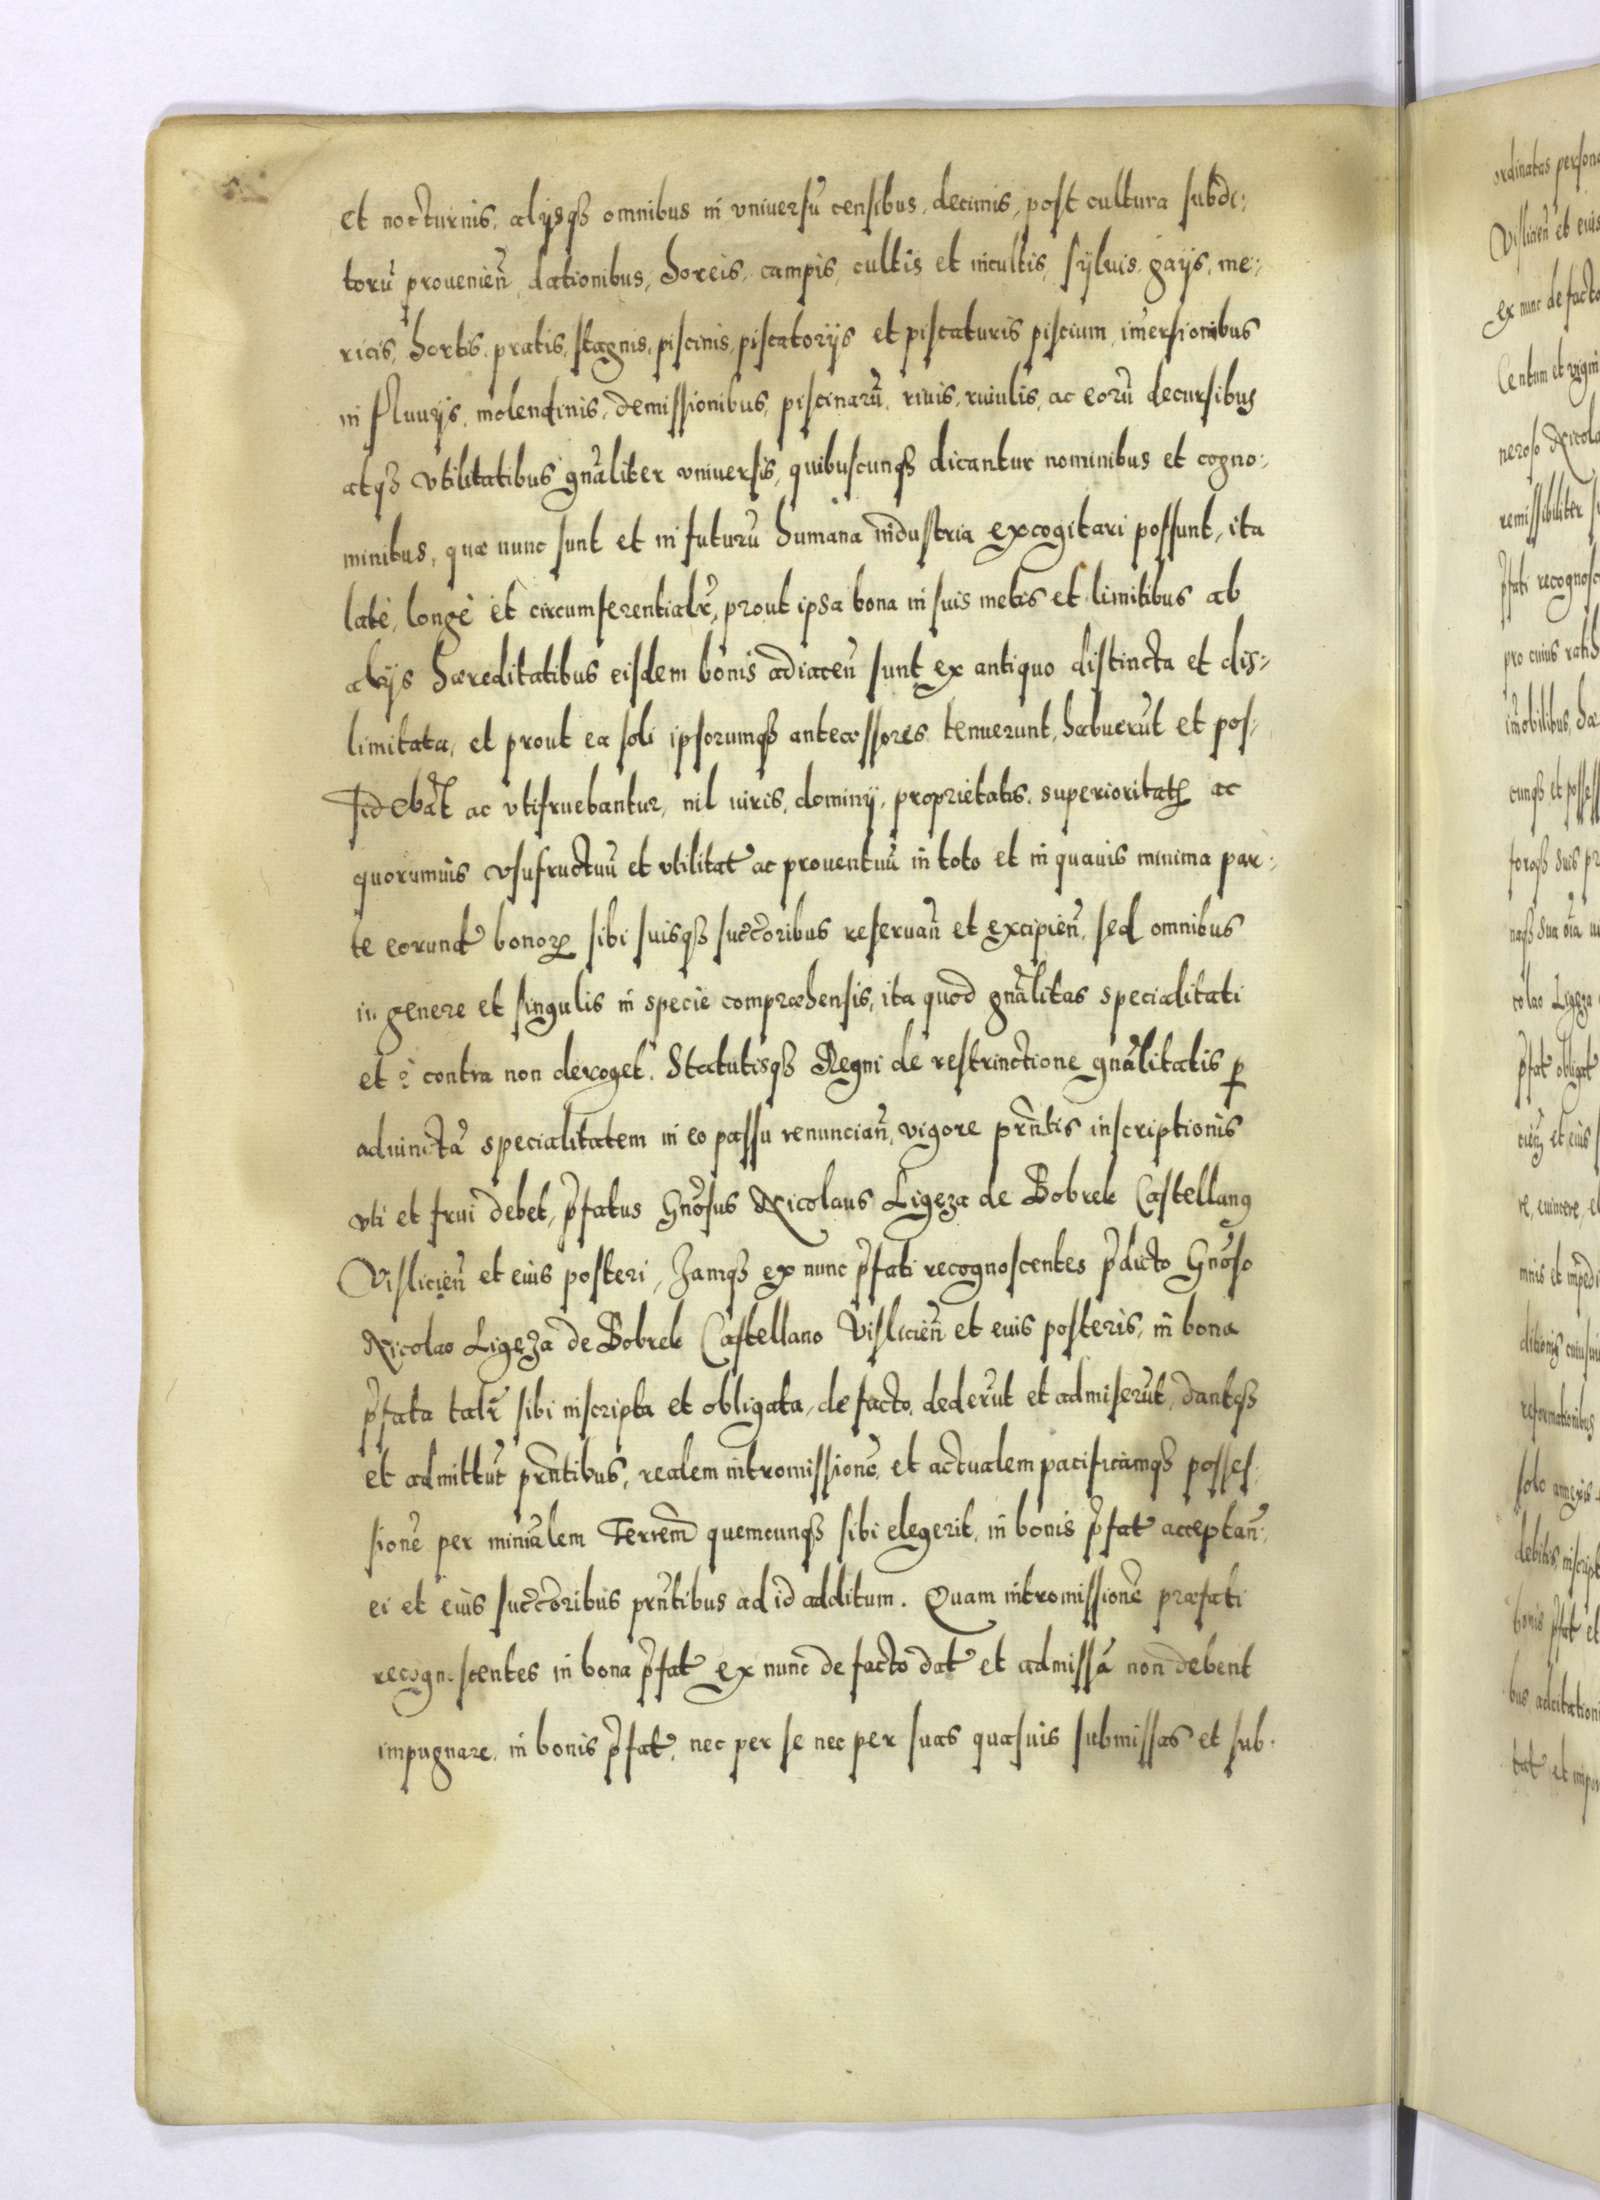 et nocturnis, alÿsqꝫ omnibus in vniuersũ censibus, decimis, post cultura subdi:
torũ prouenieñ, dationibus, horeis, campis, cultis et incultis, sÿluis, gaÿs, me:
ricis, hortis, pratis, stagnis, piscinis, piscatorÿs et piscaturis piscium, im̃ersionibus
in fluuÿs, molendinis, demissionibus, piscinarũ, riuis, riuulis, ac eorũ decursibus
atqꝫ vtilitatibus gñaliter vniuersis, quibuscunqꝫ dicantur nominibus et cogno:
minibus, quæ nunc sunt et in futurũ humana industria excogitari possunt, ita
latè, longè et circumferentialr̃, prout ipsa bona in suis metis et limitibus ab
alÿs hæreditatibus eisdem bonis adiaceñ sunt ex antiquo distincta et dis:
limitata, et prout ea soli ipsorumqꝫ antecessores tenuerunt, habuerũt et pos:
sidebãt ac vtifruebantur, nil iuris, dominÿ, proprietatis, superioritatꝭ ac
quorumuis vsufructuũ et vtilitat̃ ac prouentuũ in toto et in quauis minima par:
te eorund̃ bonoꝝ sibi suisqꝫ succ̃oribus reseruañ et excipieñ, sed omnibus
in genere et singulis in specie compræhensis, ita quod gñalitas specialitati
et è contra non deroget. Statutisqꝫ Regni de restrinctione gñalitatis ꝑ
adiunctã specialitatem in eo passu renunciañ, vigore pr̃ntis inscriptionis
vti et frui debet, p̃fatus Gñosus Nicolaus Ligęza de Bobrek Castellanꝰ
Visliciẽn et eius posteri, Iamqꝫ ex nunc p̃fati recognoscentes p̃dicto Gñoso
Nicolao Ligęza de Bobrek Castellano Vislicieñ et euis posteris, in bona
p̃fata talr̃ sibi inscripta et obligata, de facto, dederũt et admiserũt, dantqꝫ
et admittũt pr̃ntibus, realem intromissionẽ, et actualem pacificamqꝫ posses:
sionẽ per minĩalem Terrem̃ quemcunqꝫ sibi elegerit, in bonis p̃fat̃ acceptañ:
ei et eius succ̃oribus pr̃ntibus ad id additum. Quam intromissionẽ præfati
recognoscentes in bona p̃fat̃ ex nunc de facto dat̃ et admissã non debent
impugnare, in bonis p̃fat̃, nec per se nec per suas quasuis submissas et sub:
ordinatas
Vislicieñ et eius
ex nunc de facto
Centum et
neroso Nicola
remissibiliter
p̃fati
pro cuius
im̃obilibus
cunqꝫ et
colao Ligęza
p̃fat̃ obligat̃
re, euincere, et
reformationibus
solo
debitis
bonis p̃fat̃ et